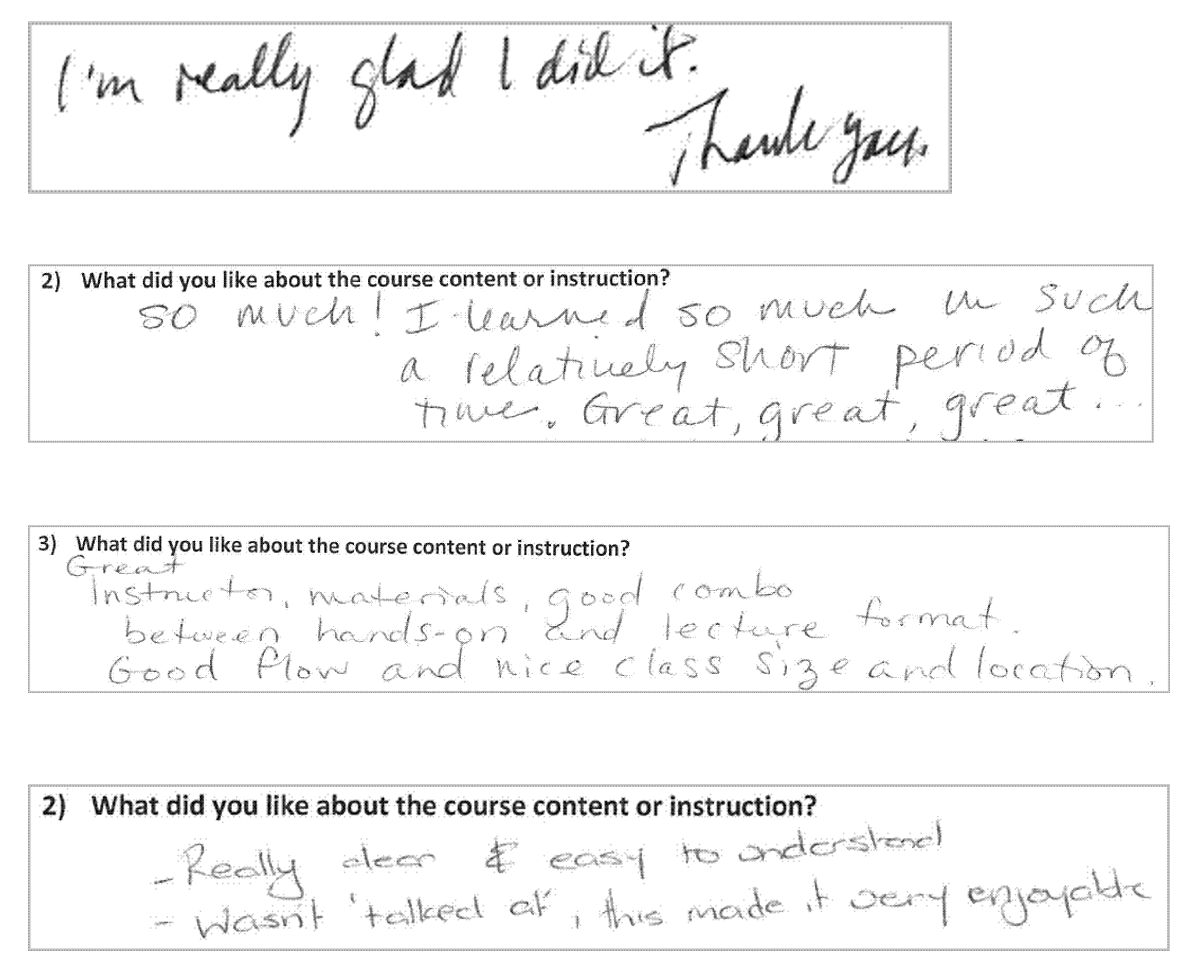 I'm really glad I did it.
Thank you.
2) What did you like about the course content or instruction?
so much! I learned so much in such
a relatively short period of
time. Great, great, great...
3) What did you like about the course content or instruction?
Great
Instructor, materials, good combo
between hands-on and lecture format.
Good flow and nice class size and location.
2) What did you like about the course content or instruction?
- Really clear & easy to understand
- Wasn't 'talked at', this made it very enjoyable